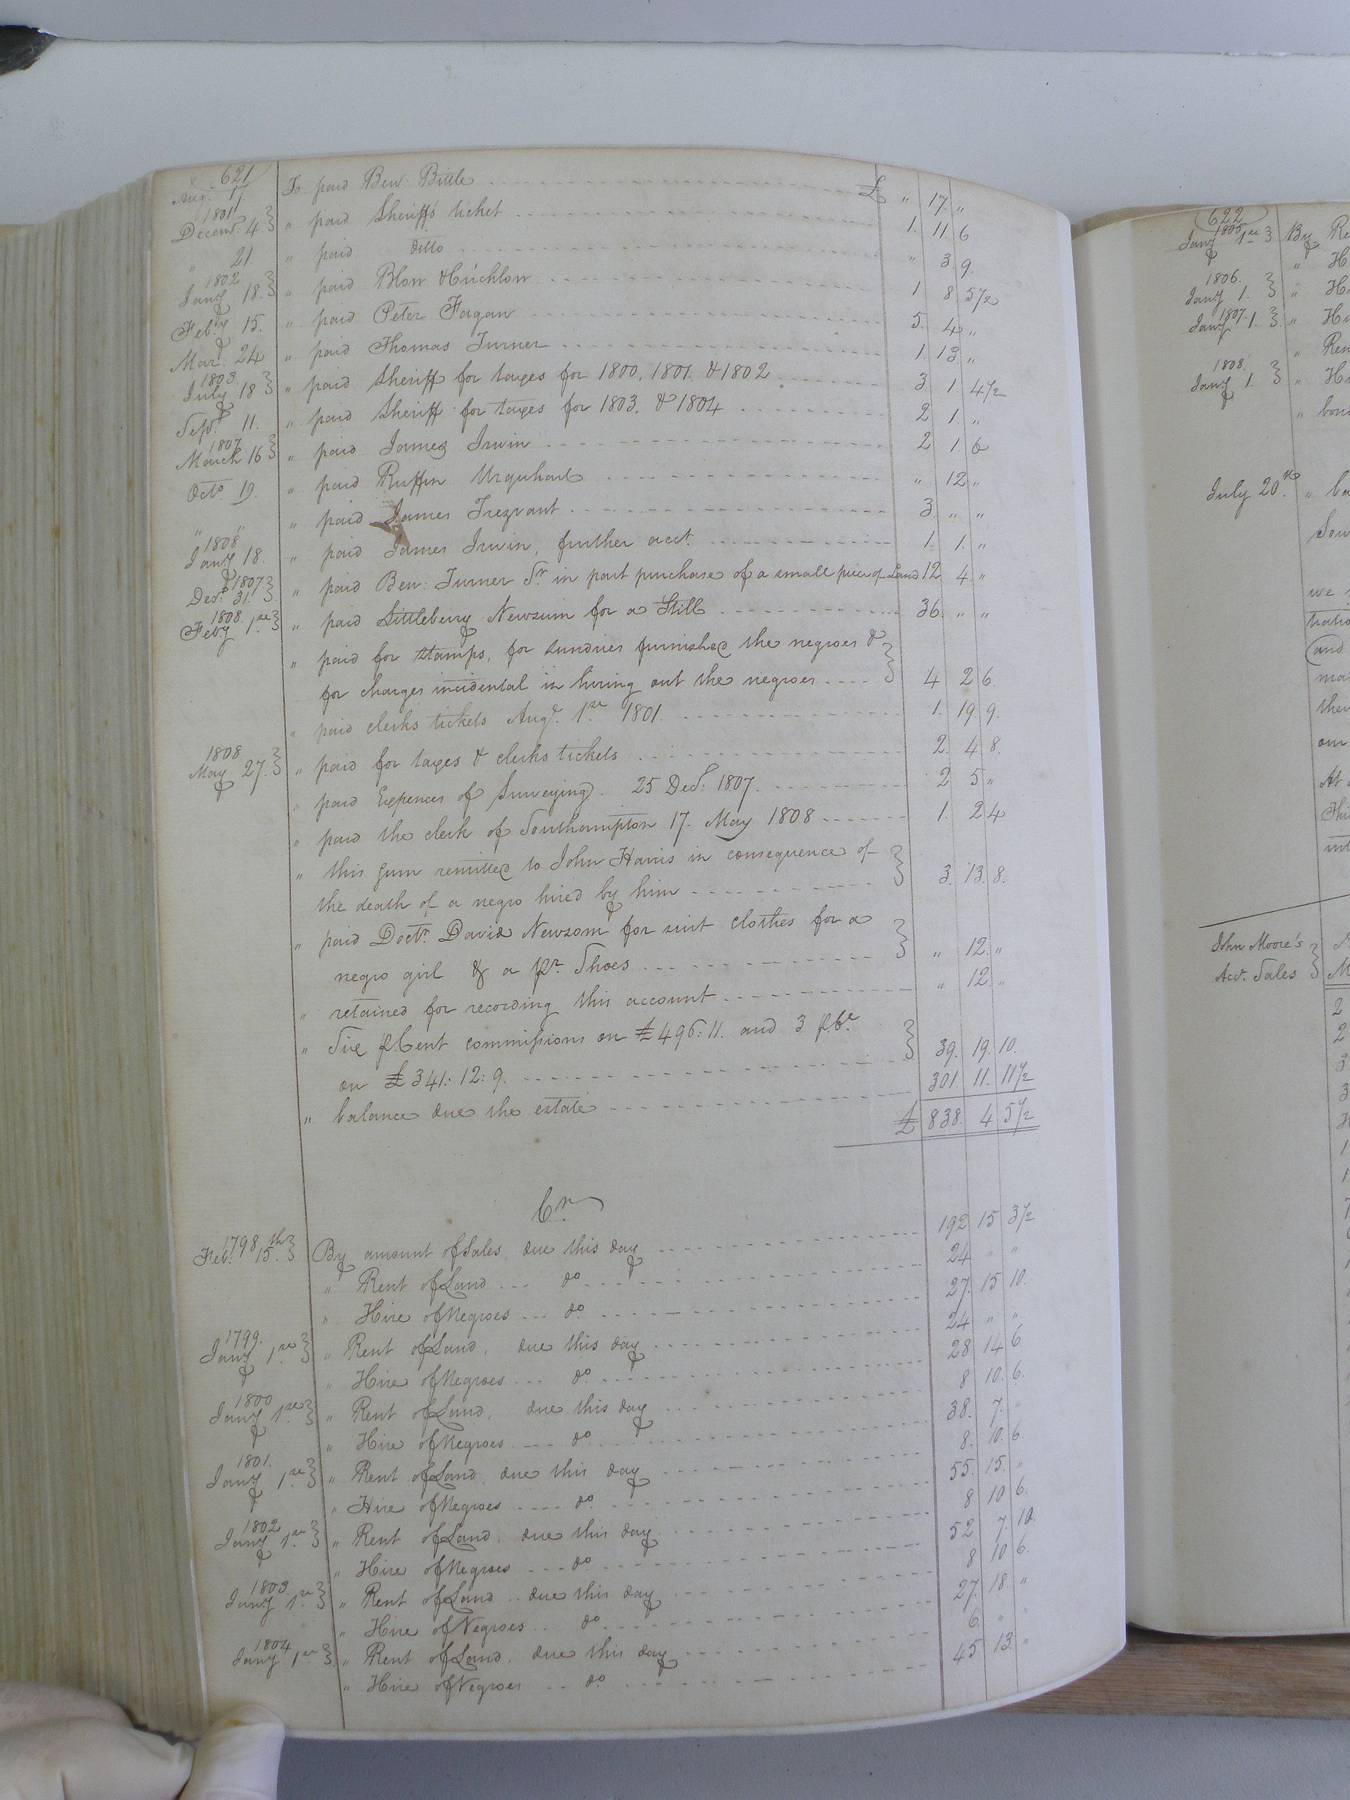 621
Augt. 17 To paid Ben: Bittle £ " 17. "
1801
Decemr. 4 } " paid Sheriffs ticket 1. 11 6
" 21 " paid ditto " 3. 9.
1802
Jany 18. } " paid Blow & Crichlow 1 8 5 1/2
Feby 15. " paid Peter Fagan 5. 4 "
Mar. 24 " paid Thomas Turner 1. 13 "
1803
July 18 } " paid Sheriff for taxes for 1800, 1801. & 1802 3 1 4 1/2
Sepr. 11. " paid Sheriff for taxes for 1803. & 1804 2 1. "
1807
March 16 } " paid James Irwin 2 1 6
Octo 19. " paid Ruffin Urquhart " 12 "
" " " paid James Trezvant 3. " "
1808
Jany 18. " paid James Irwin, further acct. 1. 1. "
1807
Decr. 31. } " paid Ben: Turner Sr. in part purchase of a small piece of Land 12 4 "
1808.
Feby 1st } " paid Littleberry Newsum for a Still 36. " "
" paid for stamps, for sundries furnished the negroes &
for charges incidental in hiring out the negroes } 4 2 6.
" paid clerks tickets Augt. 1st 1801. 1. 19 9.
1808
May 27. } " paid for taxes & clerks tickets 2. 4 8.
" paid Expences of Surveying. 25 Decr. 1807. 2 5 "
" paid the clerk of Southampton 17. May 1808 1. 2 4
" this sum remitted to John Harris in consequence of
the death of a negro hired by him } 3. 13. 8.
" paid Doctr. David Newsom for suit clothes for a
negro girl & a pr. Shoes } " 12. "
" retained for recording this account " 12 "
" Five p Cent commissions on £496: 11. and 3 p Ct.
on £341: 12: 9. } 39. 19. 10.
" balance due the estate 301. 11. 11 1/2
£ 838. 4 5 1/2
Cr
1798
Feb. 15.th } By amount of Sales, due this day 192 15 3 1/2
" Rent of Land do 24 " "
" Hire of Negroes do 27. 15 10.
1799.
Jany 1st } " Rent of Land, due this day 24 " "
" Hire of Negroes do 28 14 6
1800
Jany 1st } " Rent of Land, due this day 8 10. 6.
" Hire of Negroes do 38. 7. "
1801.
Jany 1st } " Rent of Land, due this day 8. 10. 6
" Hire of Negroes do. 55. 15. "
1802
Jany 1st } " Rent of Land, due this day 8 10 6.
" Hire of Negroes do 52 7. 10.
1803
Jany 1st } " Rent of Land due this day 8 10 6.
" Hire of Negroes do 27. 18. "
1804
Jany 1st } " Rent of Land, due this day 6. " "
" Hire of Negroes do 45 13. "
622
1805
Jany 1st } By Re
" H
1806.
Jany 1. } " Hi
1807.
Jany 1. } " Hi
" Ren
1808.
Jany 1. } " Hi
July 20th " ba
we
(and
ther
our
At
John Moore's
Acct. Sales }
2
2
3
3
1
1